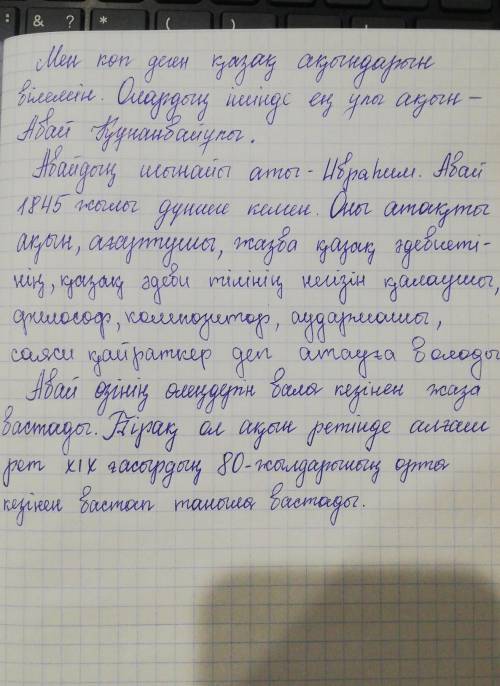 Мен көп деген қазақ ақындарын
білемін. Олардың ішінде ең ұлы ақын –
Абай Құнанбайұлы.
Абайдың шынайы аты - Ибраһим. Абай
1845 жылы дүниеге келген. Оны атақты
ақын, ағартушы, жазба қазақ әдебиеті-
нің, қазақ әдеби тілінің негізін қалаушы,
философ, композитор, аудармашы,
саяси қайраткер деп атауға болады
Абай өзінің өлеңдерін бала кезінен жаза
бастады. Бірақ ол ақын ретінде алғаш
рет XIX ғасырдың 80-жылдарының орта
кезінен бастап таныла бастады.